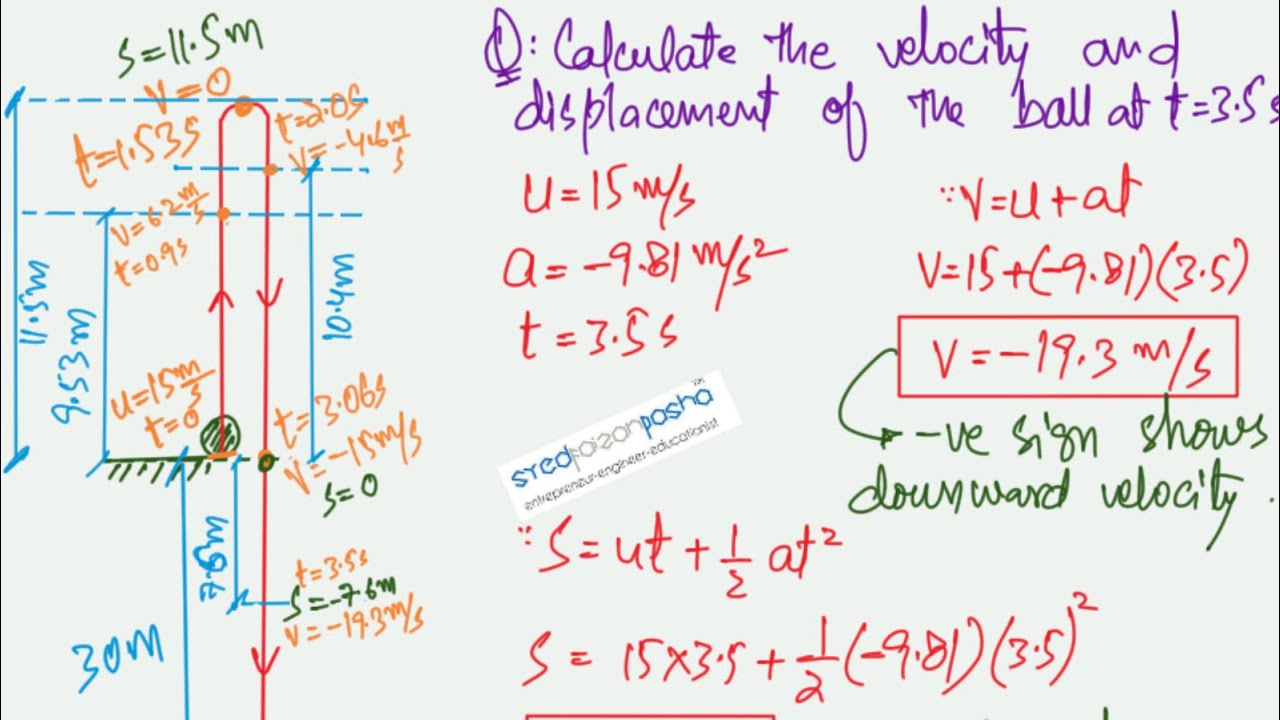 S=11.5m
V=0
t=1.53s
t=2.0s
V=-4.6 m/s
V=6.2 m/s
t=0.9s
11.5m
9.53m
10.4m
u=15 m/s
t=0
t=3.06s
V=-15m/s
S=0
7.6m
t=3.5s
S=-7.6m
V=-19.3m/s
30m
Q: Calculate the velocity and
displacement of the ball at t=3.5s
u=15 m/s
a=-9.81 m/s²
t=3.5s
∵V=u+at
V=15+(-9.81)(3.5)
V=-19.3 m/s
-ve sign shows
downward velocity.
syedfaizanposha
entrepreneur-engineer-educationist
∵S=ut+1/2 at²
S = 15×3.5+1/2(-9.81)(3.5)²